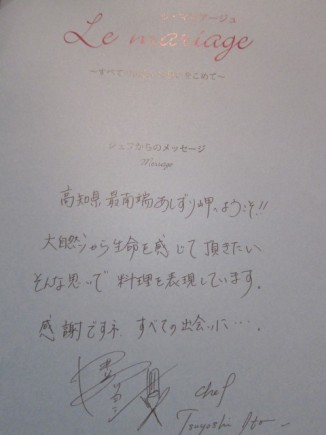 Le mariage
シェフからのメッセージ
Marriage
高知県最南端あしずり岬へようこそ!!
大自然から生命を感じて頂きたい
そんな思いで料理を表現しています。
感謝ですネ すべての出会いに…。
chef
Tsuyoshi